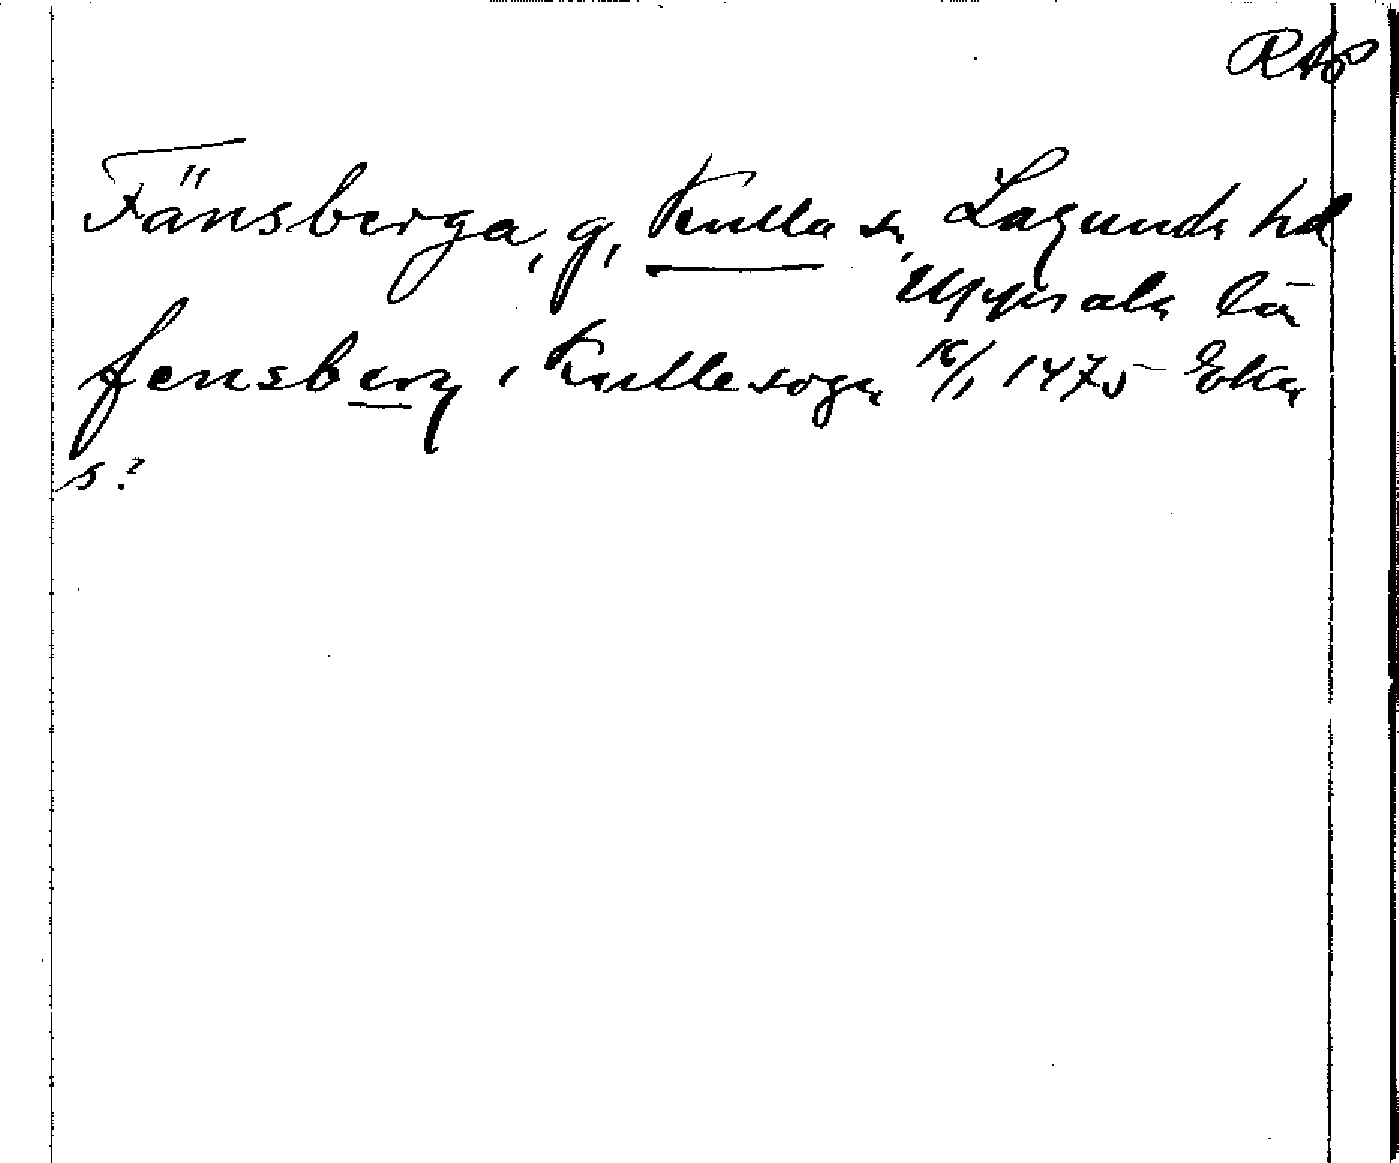 RAP
Fänsberga, g, Kulla sn, Lagunda hd
Uppsala län
fensberg i Kulle sogn 16/1 1475 Eka
s?